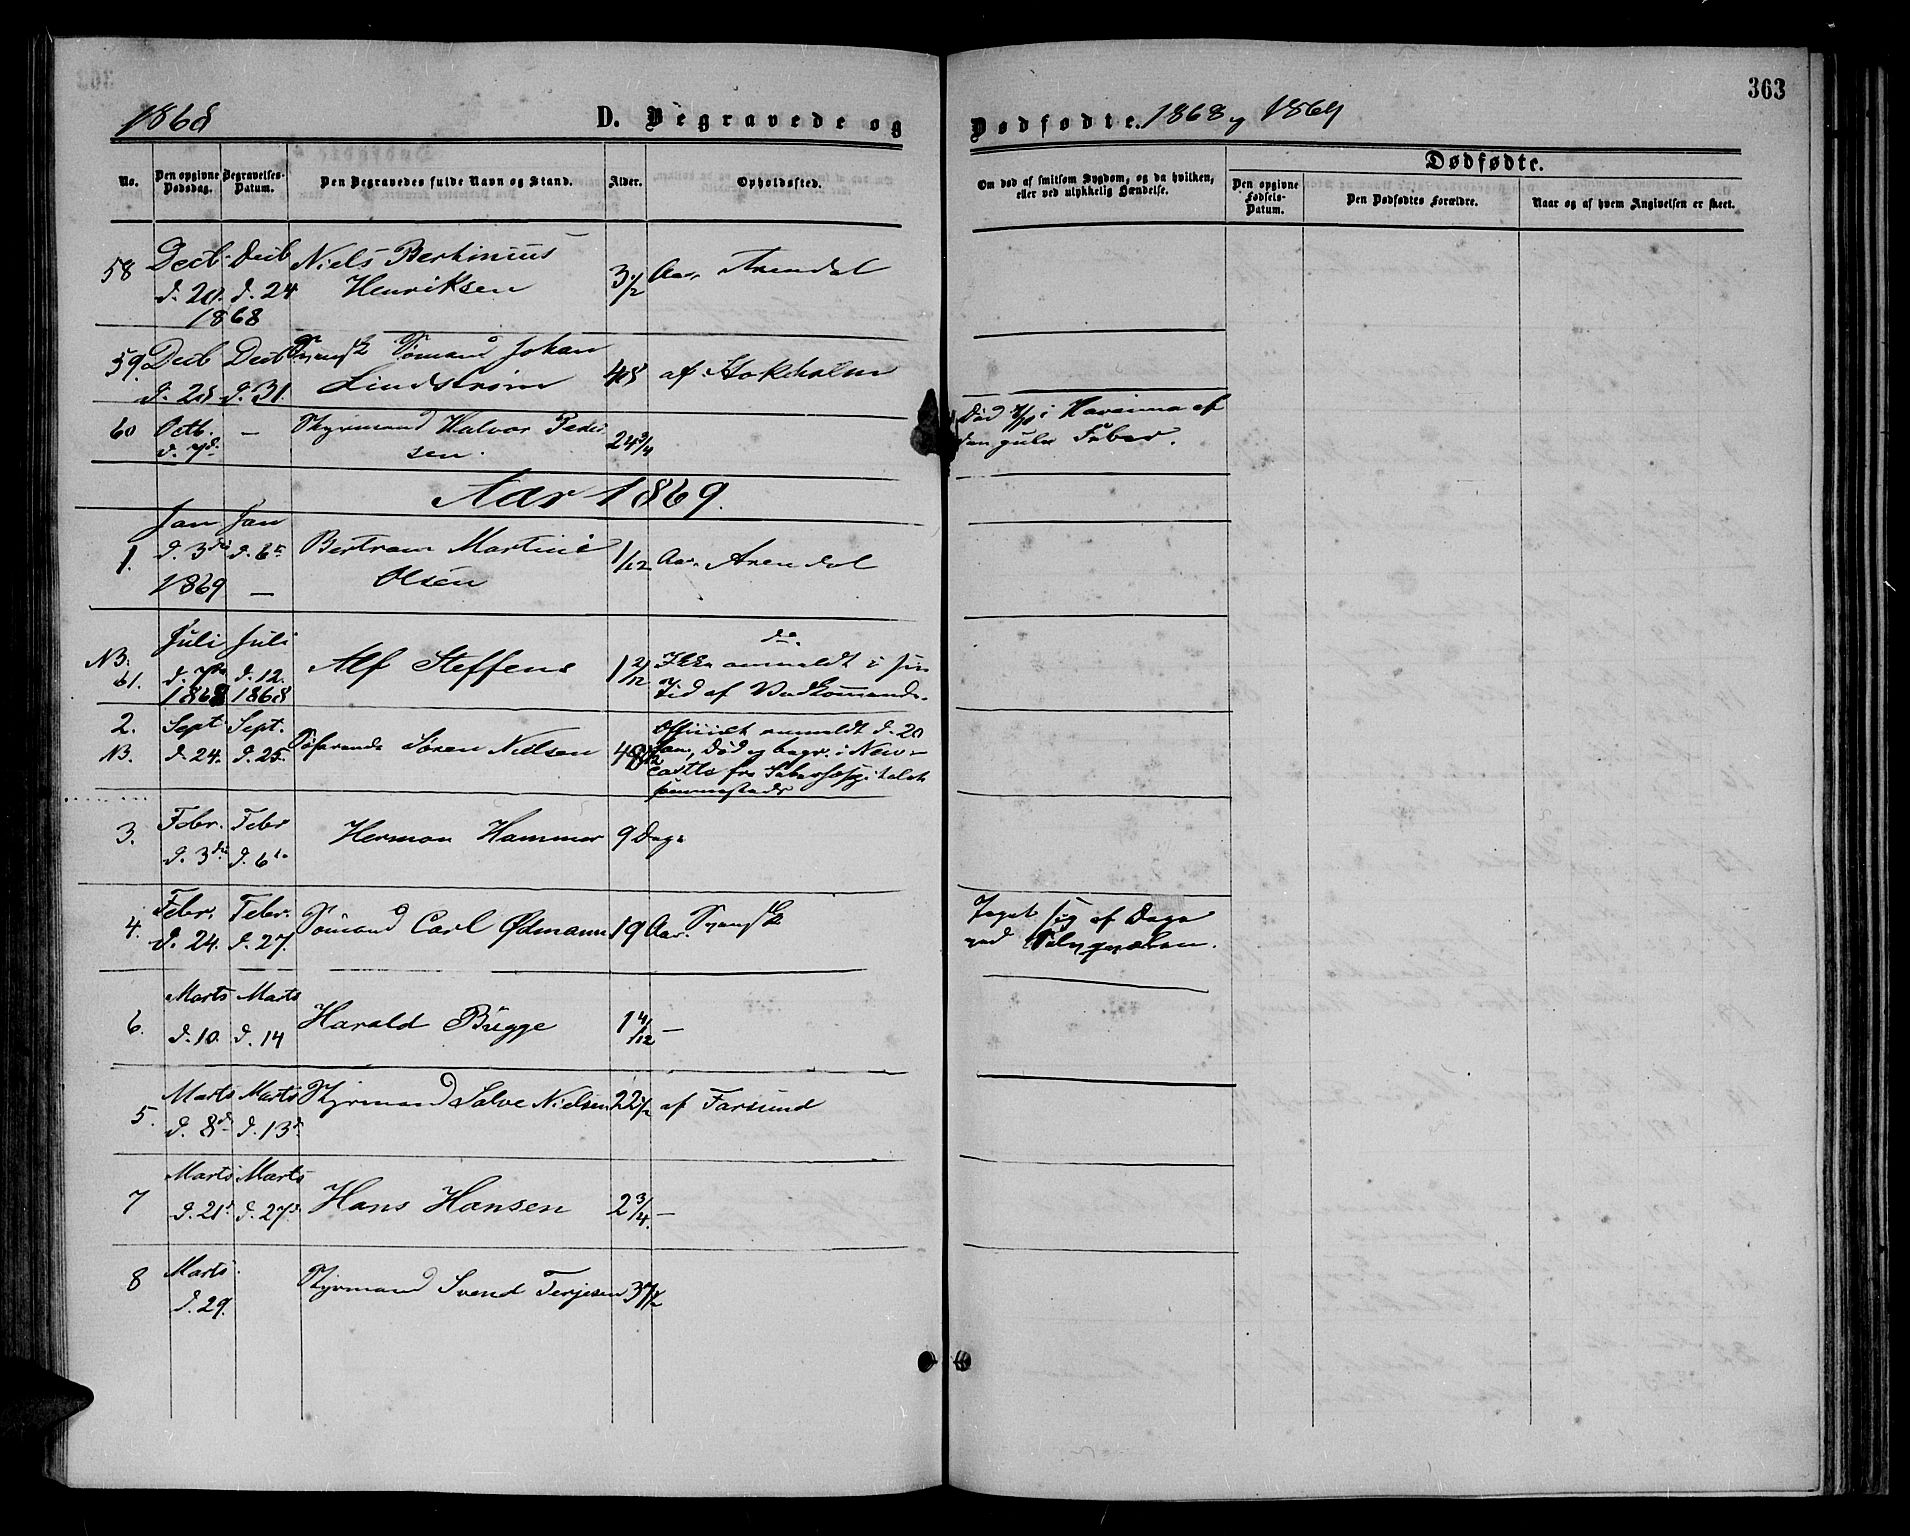 363
1868
D. Begravede og
Dødfødte. 1868 og 1869
No.
Den opgivne Dødsdag.
Begravelses-Datum.
Den Begravedes fulde Navn og Stand.
Alder.
Opholdssted.
Om død af smitsom Sygdom, og da hvilken, eller ved ulykkelig Hændelse.
Dødfødte.
Den opgivne Fødsels-Datum.
Den Dødfødtes Forældre.
Naar og af hvem Angivelsen er skeet.
58 Decb. Decb Niels Bertinius
d. 20. d. 24 Henriksen 3 1/2 Aar. Arendal
1868
59. Decb Decb Svensk Sømand Johan
d. 28 d. 31. Lindstrøm 48 af Stokholm
60 Octb. — Styrmand Halvor Peder
d. 7d. sen. 24 3/4
Død i Havanna af
den gule Feber.
Aar 1869.
Jan Jan
1. d. 3die d. 6te Bertram Martini 1/12 Aar. Arendal
1869 — Olsen
Juli Juli do
NB. 61. d. 7de d. 12. Alf Steffens 1 2/12 Ikke anmeldt i sin
1868 1868 Tid af Vedkommende.
2. Sept. Sept. anmeldt d. 20
NB. d. 24. d. 25. Søfarende Søren Nielsen 48 Jan, Død og begr. i New-
castle
3. Febr. Febr Herman Hammer 9 Dage
d. 3die d. 6te
4. Febr. Febr. Sømand Carl Ødmann 19 Aar. Svensk
d. 24. d. 27.
Taget sig af Dage
ved
Marts Marts
6. d. 10. d. 14 Harald Bugge 1 4/12 —
Marts Marts Styrmand Salve Nielsen 22 1/2 af Farsund
5. d. 8de d. 13d
Marts Marts
7 d. 21d d. 27d. Hans Hansen 2 3/4. —
8 Marts. Styrmand Svend Terjesen 37 1/2
d. 29.